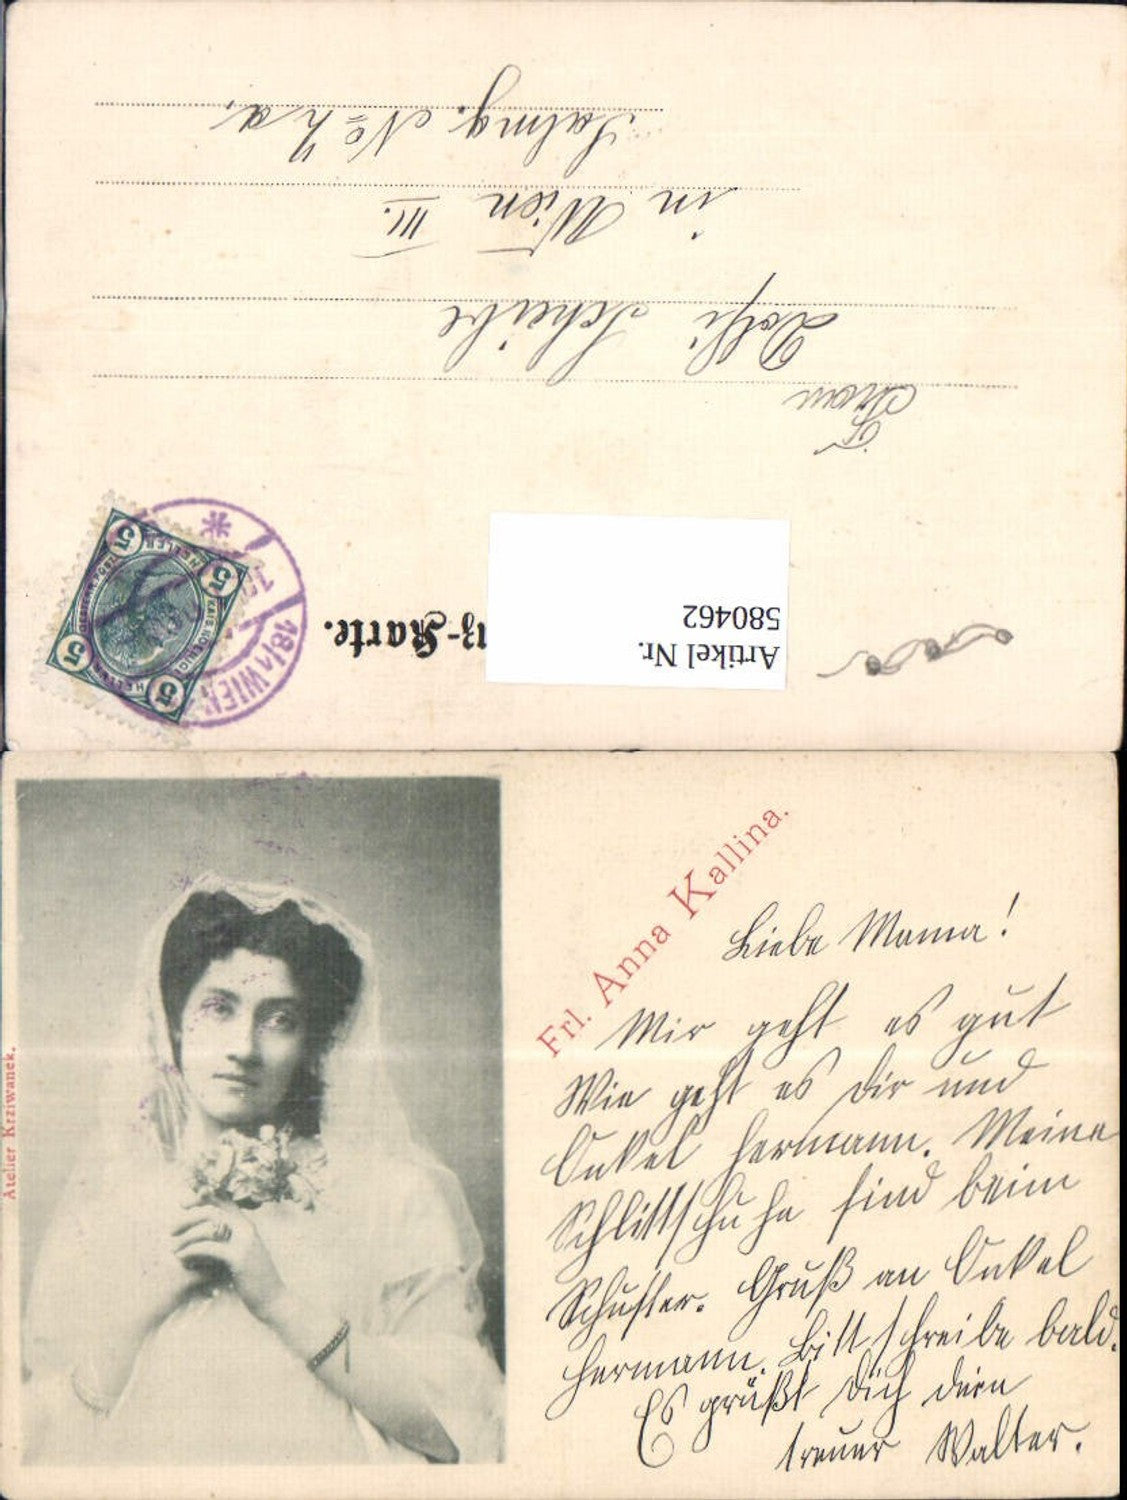 Frau
Dolfi Scheibe
in Wien III.
Salmg. No
580462
Artikel Nr.
z-Karte.
5
5
5
5
HELLER
HELLER
18/1 WIEN
Frl. Anna Kallina.
Atelier Krziwanek.
Liebe Mama!
Mir geht es gut
Wie geht es Dir und
Onkel Hermann. Meine
Schlittschuhe sind beim
Schuster. Gruß an Onkel
Hermann. Bitt schreibe bald.
Es grüßt Dich dein
treuer Walter.